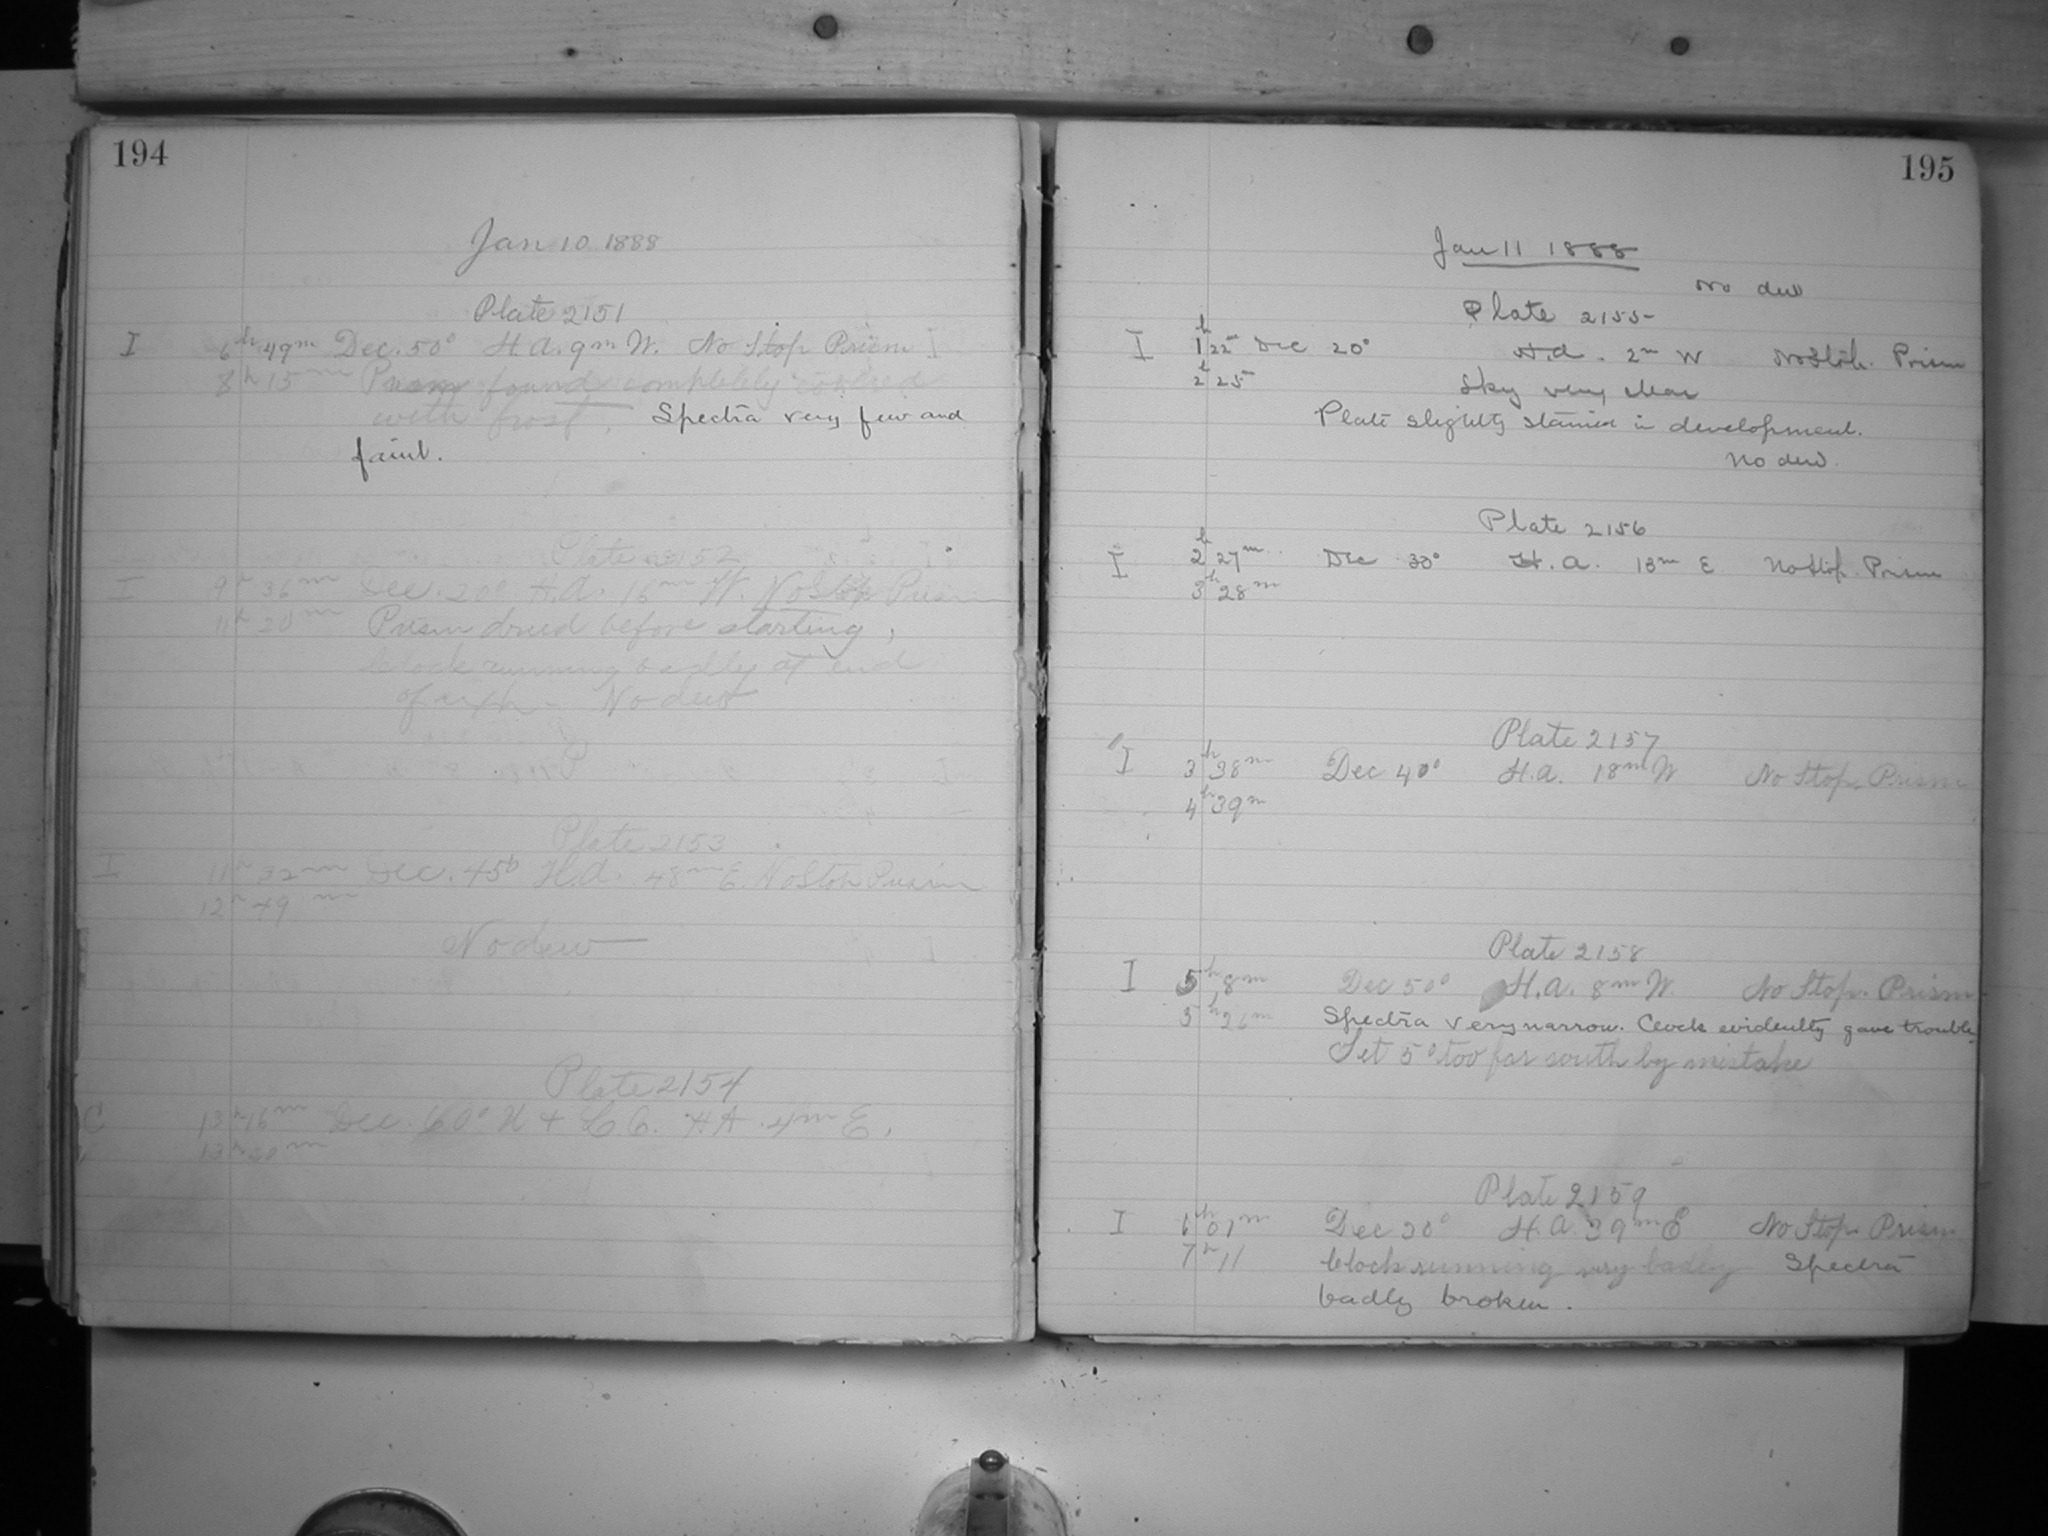 194
Jan 10 1888
Plate 2151
I 6h 49m Dec. 50° H.A. 9m W. No Stop Prism I
8h 15m Prism found completely covered
with frost. Spectra very few and
faint.
Plate 2152
I 9h 36m Dec. 20° H.A. 16m W. No Stop Prism
11h 20m Prism dried before starting,
Clock running badly at end
of exp. No dew
Plate 2153
I 11h 32m Dec. 45° H.A. 48m E. No Stop Prism
12h 49m
No dew
Plate 2154
C 13h 16m Dec. 60° H.A. 4m E.
13h 20m
195
Jan 11 1888
No dew
Plate 2155
I 1h 22m Dec 20° H.A. 2m W No Stop. Prism
2h 25m Sky very clear
Plate slightly stained in development.
No dew.
Plate 2156
I 2h 27m Dec 30° H.A. 13m E No Stop. Prism
3h 28m
Plate 2157
I 3h 38m Dec 40° H.A. 18m W No Stop. Prism
4h 39m
Plate 2158
I 5h 8m Dec 50° H.A. 8m W. No Stop. Prism
5h 26m Spectra very narrow. Clock evidently gave trouble.
Set 5° too far south by mistake
Plate 2159
I 6h 07m Dec 30° H.A. 39m E No Stop. Prism
7h 11 Clock running very badly Spectra
badly broken.